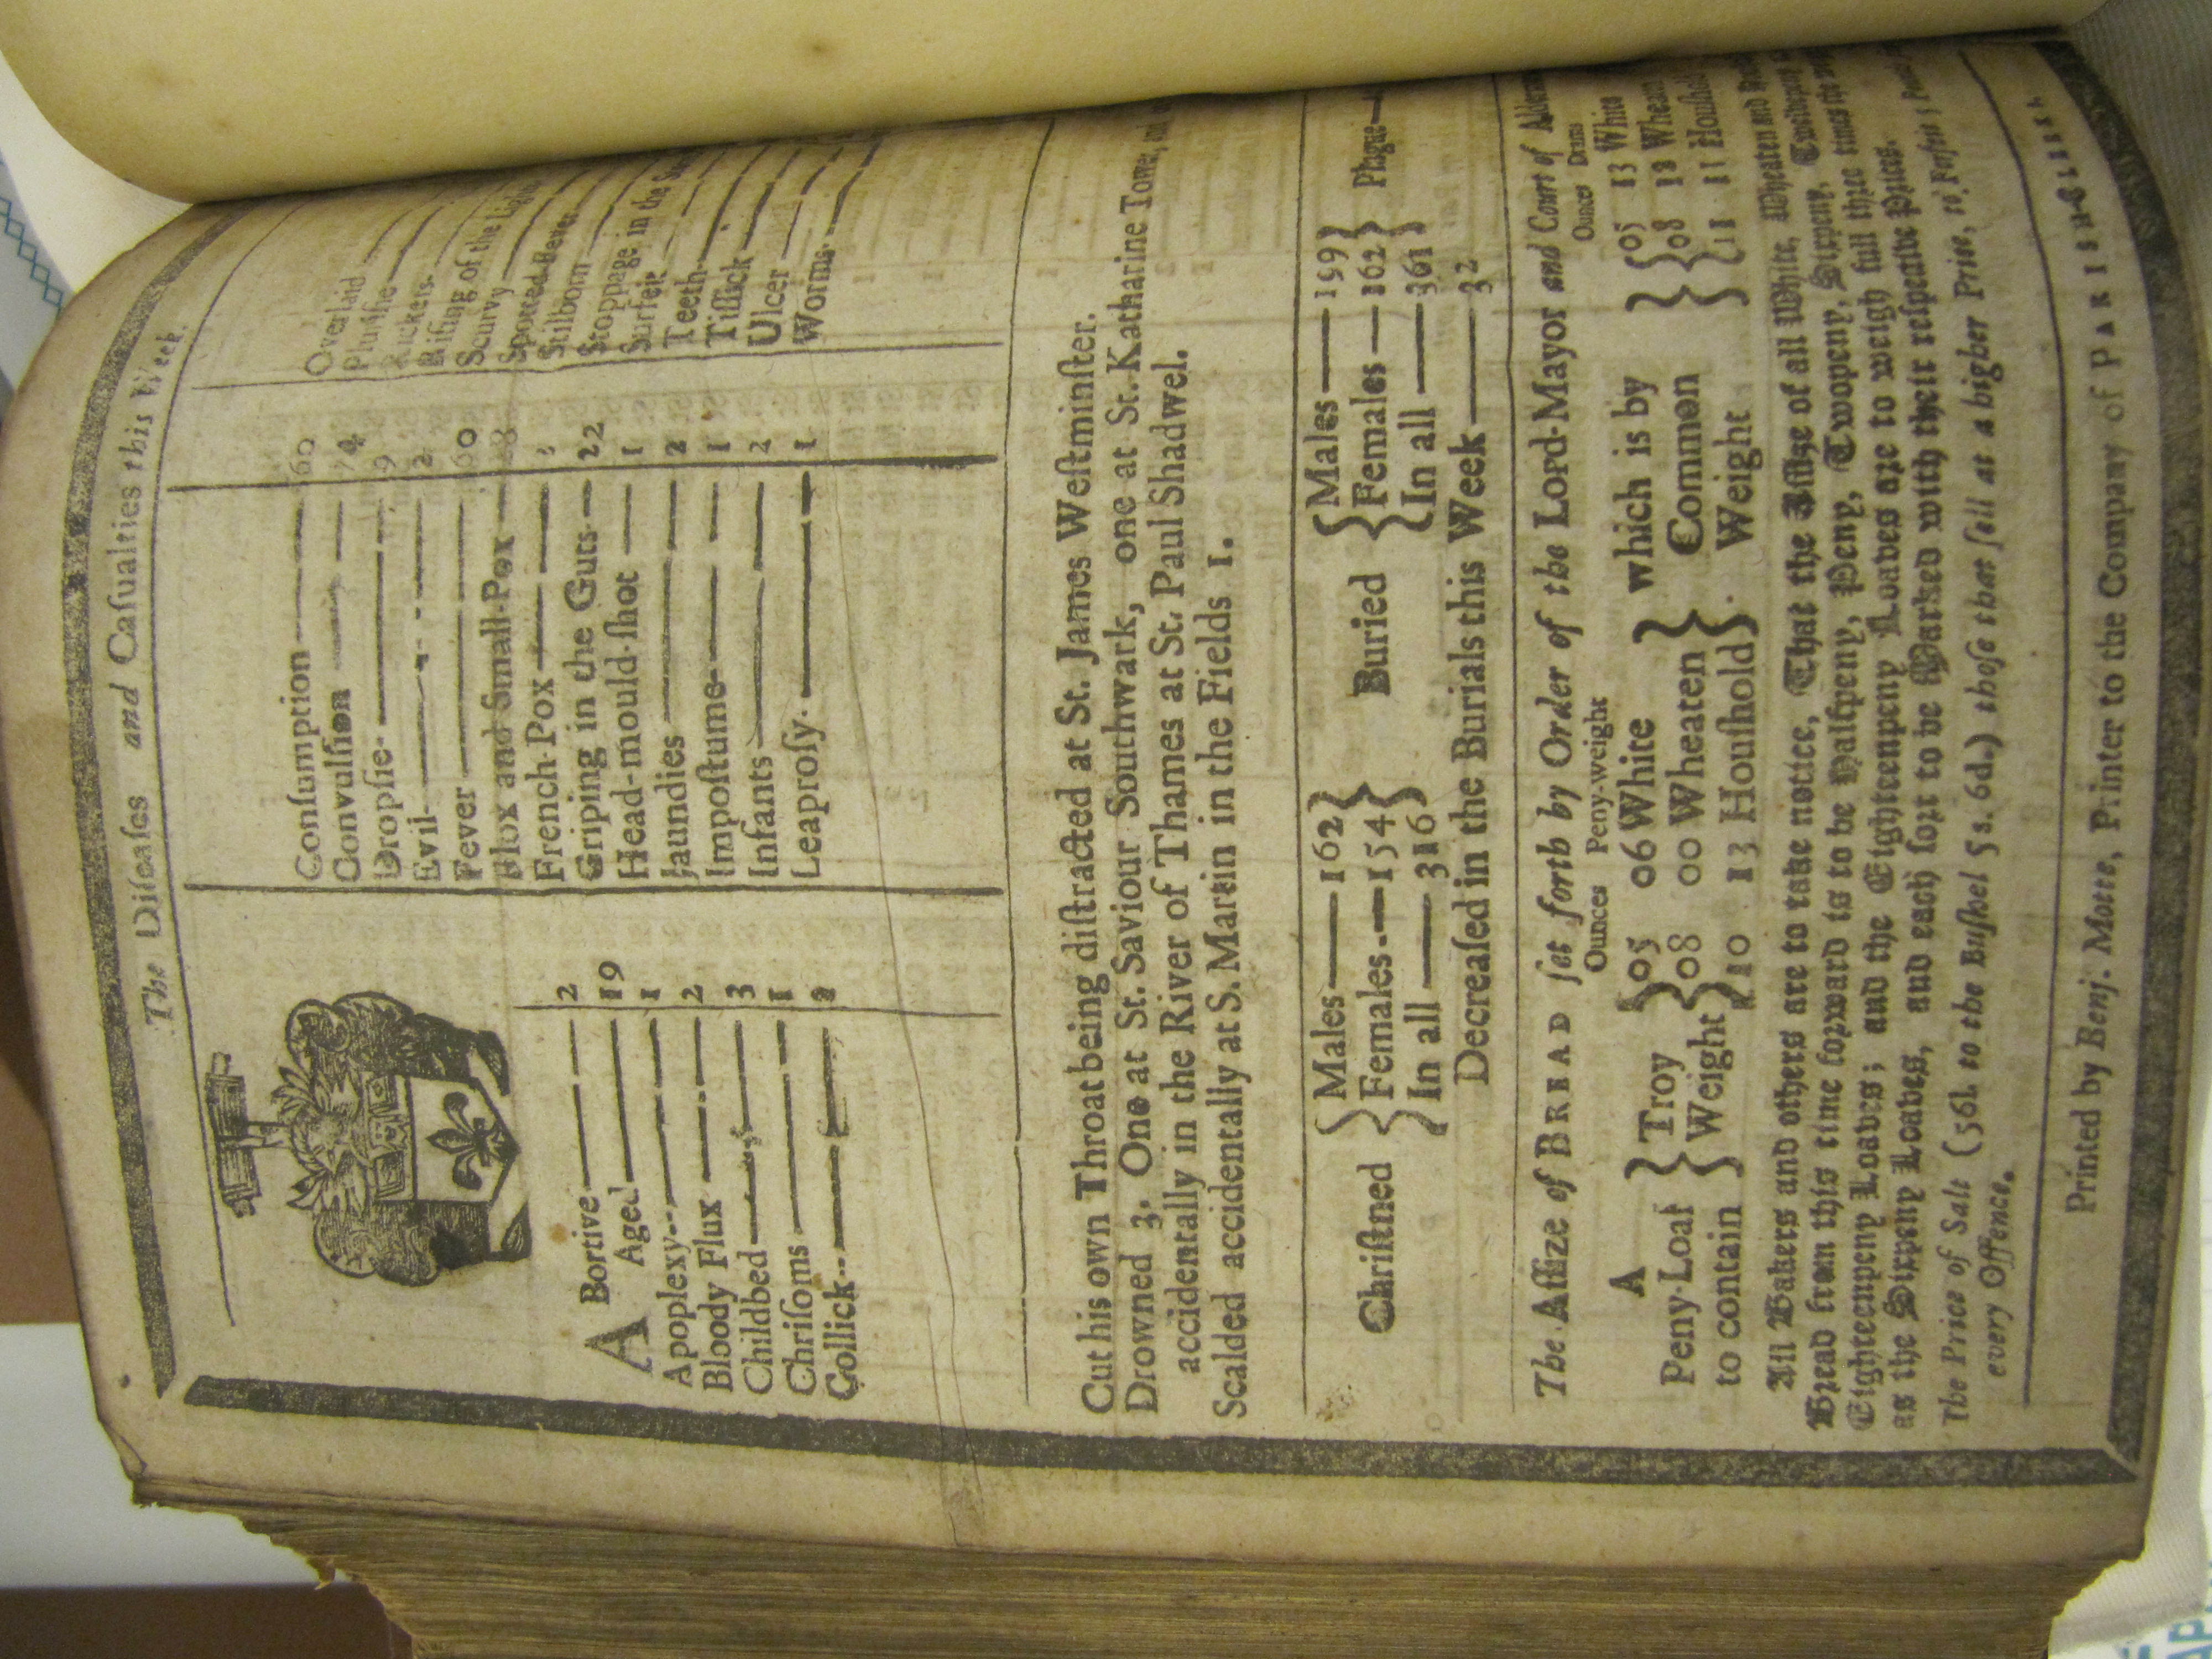 The Diſeaſes and Caſualties this Week.
A Bortive 2
Aged 19
Apoplexy 1
Bloody Flux 2
Childbed 3
Chriſoms 1
Collick 2
Conſumption 60
Convulſion 74
Dropſie 9
Evil 2
Fever 60
Flux and Small-Pox
French-Pox
Griping in the Guts 22
Head-mould-ſhot 1
Jaundies 2
Impoſtume 1
Infants 2
Leaproſy 1
Overlaid
Pluriſie
Rickets
Riſing of the Lights
Scurvy
Spotted-Fever
Stilborn
Stoppage in the
Surfeit
Teeth
Tiſſick
Ulcer
Worms
Cut his own Throat being diſtracted at St. James Weſtminſter.
Drowned 3. One at St. Saviour Southwark, one at St. Katharine Tower,
accidentally in the River of Thames at St. Paul Shadwel.
Scalded accidentally at S. Martin in the Fields 1.
Chriſtned { Males 162 Females 154 In all 316 } Buried { Males 199 Females 162 In all 361 } Plague
Decreaſed in the Burials this Week 32
The Aſſize of BREAD ſet forth by Order of the Lord-Mayor and Court of
Ounces Peny-weight Ounces Drams
A } 05 06 White } which is by } 05 13 White
Peny-Loaf } Troy } 08 00 Wheaten } Common } 08 12 Wheaten
to contain } Weight } 10 13 Houſhold } Weight } 11 11 Houſhold
All Bakers and others are to take notice, That the Aſſize of all White, Wheaten and
Bread from this time forward is to be Halfpeny, Peny, Twopeny, Sixpeny, Twelvepeny
Eighteenpeny Loaves; and the Eighteenpeny Loaves are to weigh full three times
as the Sixpeny Loaves, and each ſort to be Marked with their reſpective Prices.
The Price of Salt (56l. to the Buſhel 5s. 6d.) thoſe that ſell at a higher Price, to Forfeit 5
every Offence.
Printed by Benj. Motte, Printer to the Company of PARISH-CLERKS.